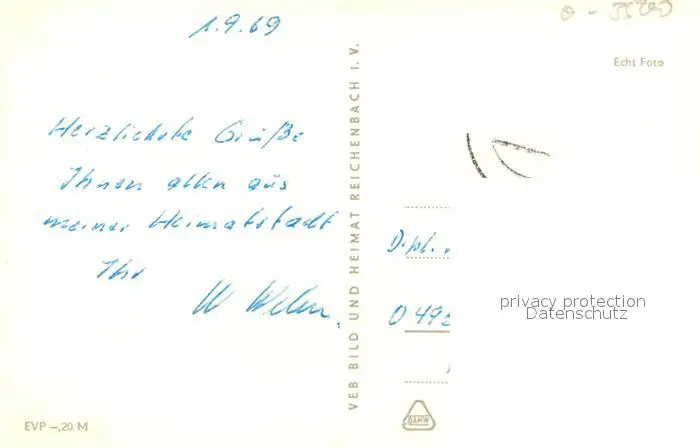 1.9.69
Echt Foto
Herzlichste Grüße
Ihnen allen aus
meiner Heimatstadt
Ihr
W
VEB BILD UND HEIMAT REICHENBACH I. V.
Dipl.
D 49
privacy protection
Datenschutz
DAMW
EVP –,20 M